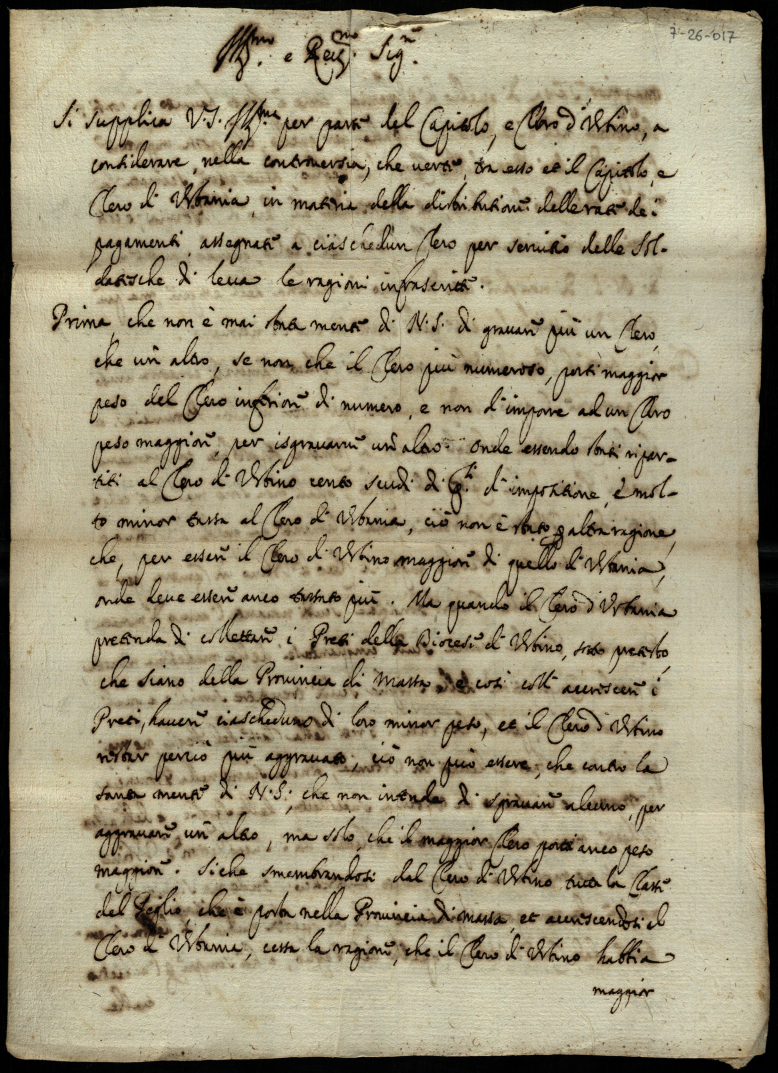 7-26-017
Ill.mo e Rev.mo Sig.r
Si supplica V.S. Ill.ma per parte del Capitolo, e Clero d'Urbino, a
considerare, nella controversia, che verte, tra esso et il Capitolo, e
Clero di Urbania, in materia della distributione delle rate de'
pagamenti, assegnati a ciaschedun Clero per servitio delle Sol-
datesche di leva le ragioni infrascritte.
Prima, che non è mai stata mente di N.S. di gravare più un Clero,
che un altro, se non, che il Clero più numeroso, porti maggior
peso del Clero inferiore di numero, e non d'imporre ad un Clero
peso maggiore, per isgravarne un altro. Onde essendo stati ripar-
titi al Clero di Urbino cento scudi di d'impositione, e mol-
to minor tassa al Clero di Urbania, ciò non è stato p altra ragione,
che, per essere il Clero di Urbino maggiore di quello d'Urbania,
onde deve essere anco tassato più. Ma quando il Clero d'Urbania
pretenda di collettare i Preti della Diocesi d'Urbino, sotto pretesto,
che siano della Provincia di Massa, e così coll' accrescere i
Preti, havere ciascheduno di loro minor peso, et il Clero d'Urbino
restar perciò più aggravato, ciò non può essere, che contro la
santa mente di N.S., che non intende di sgravare alcuno, per
aggravare un altro, ma solo, che il maggior Clero porti anco peso
maggiore. Siche smembrandosi dal Clero d'Urbino tutta la Parte
del Foglio, che è posta nella Provincia di Massa, et accrescendosi el
Clero d'Urbania, cessa la ragione, che il Clero d'Urbino habbia
maggior